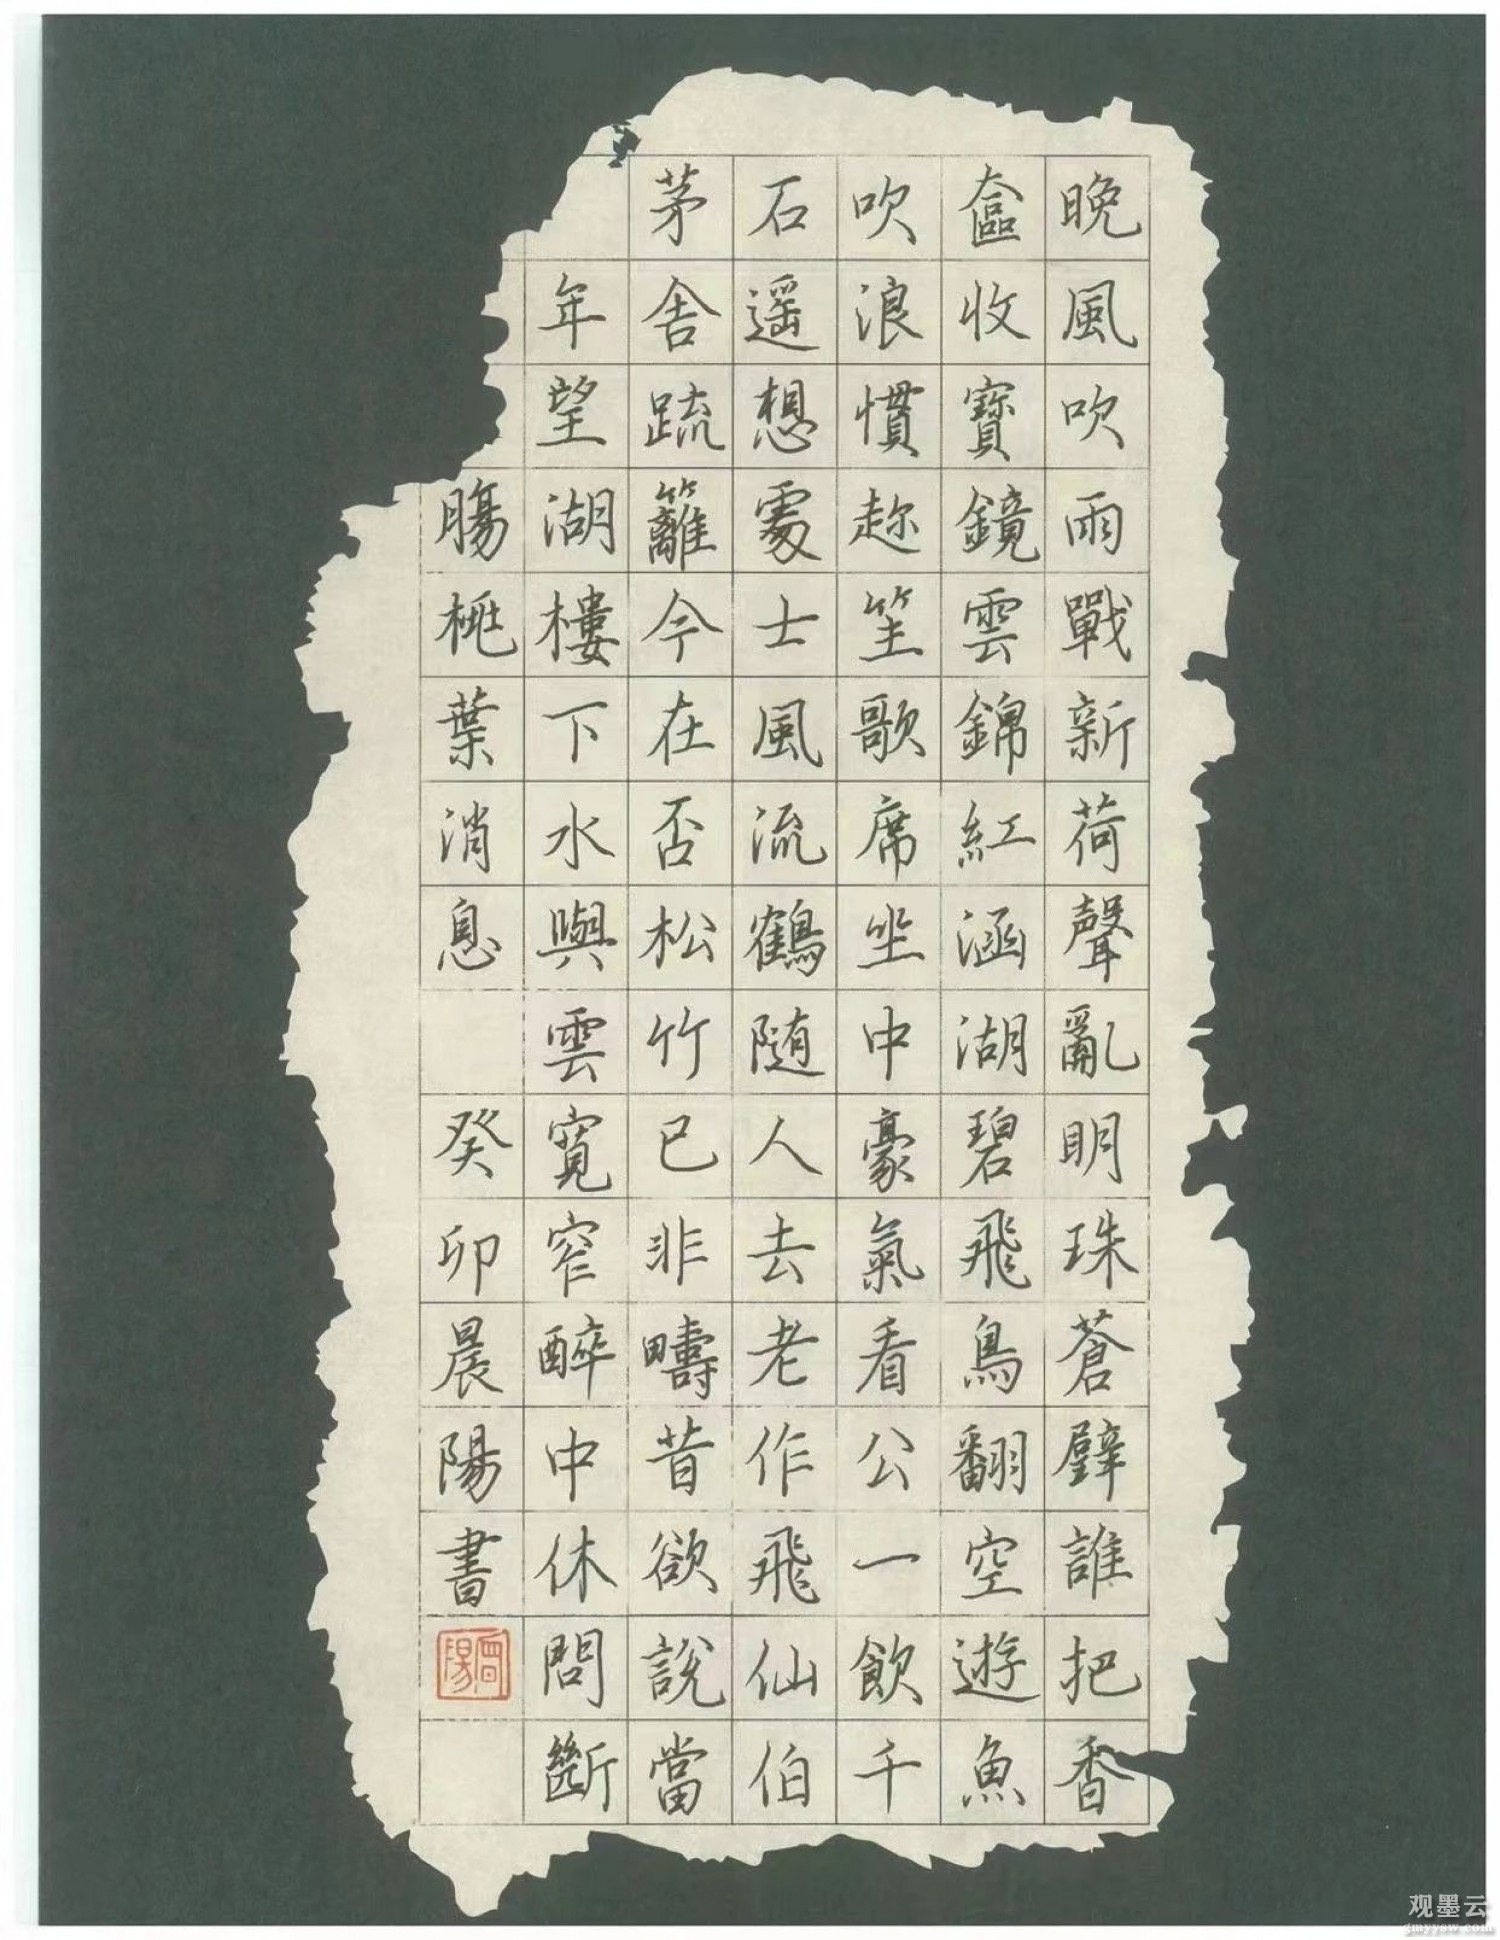 晚風吹雨戰新荷聲亂明珠蒼璧誰把香
奩收寶鏡雲錦紅涵湖碧飛鳥翻空遊魚
吹浪慣趂笙歌席坐中豪氣看公一飲千
石遥想處士風流鶴随人去老作飛仙伯
茅舍疏籬今在否松竹已非疇昔欲說當
年望湖樓下水與雲寬窄醉中休問斷
腸桃葉消息 癸卯晨陽書
观墨云
gmyysw.com